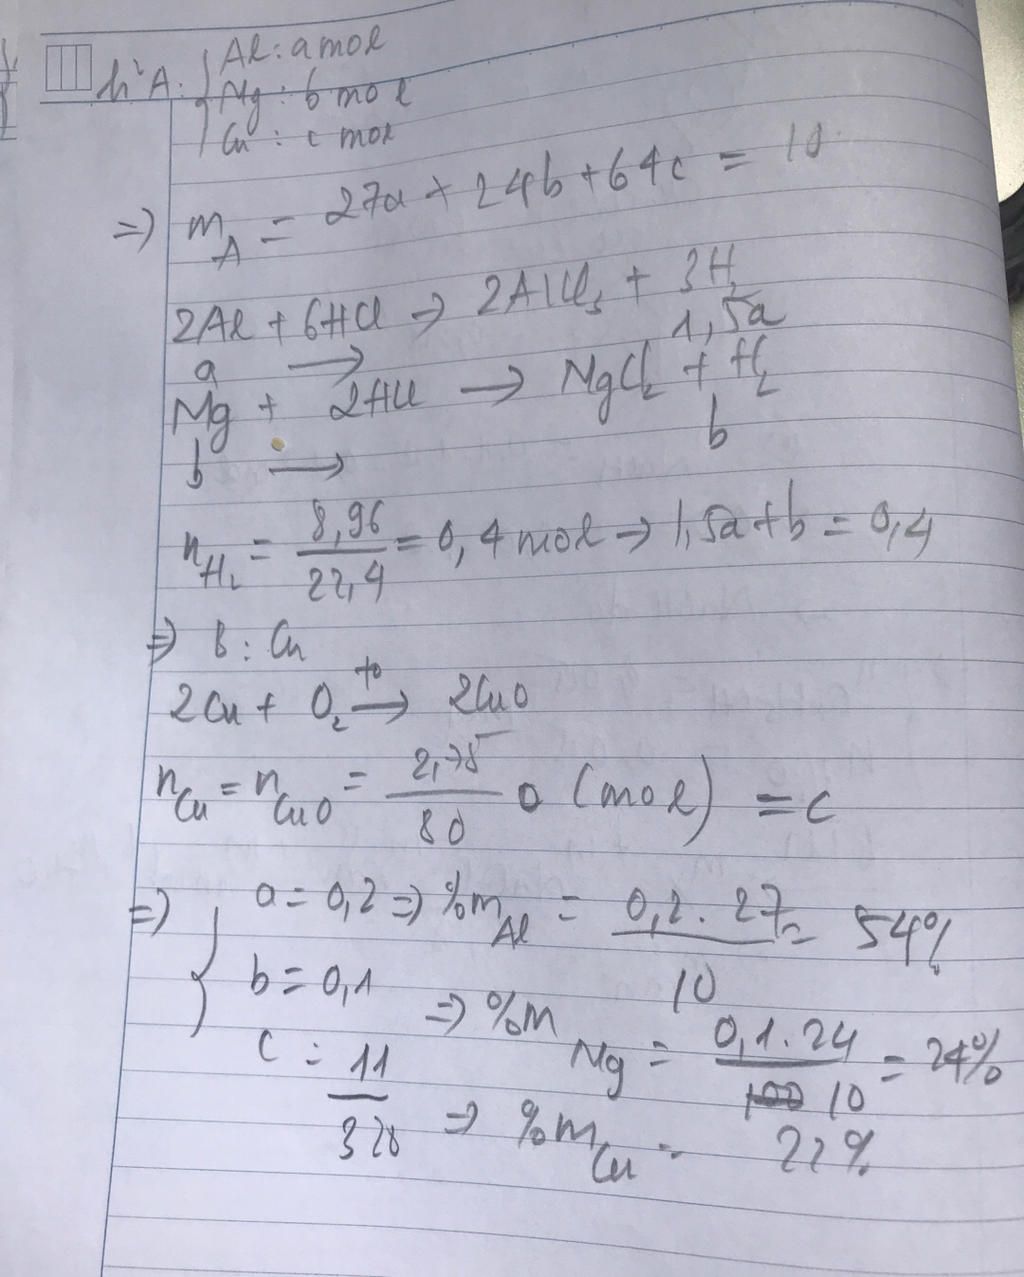 h² A: { Al: a mol
Mg: b mol
Cu: c mol
=> m_A = 27a + 24b + 64c = 10
2Al + 6HCl → 2AlCl₃ + 3H₂
a → 1,5a
Mg + 2HCl → MgCl₂ + H₂
b → b
n_H₂ = 8,96/22,4 = 0,4 mol → 1,5a + b = 0,4
=> B: Cu
2Cu + O₂ →(t⁰) 2CuO
n_Cu = n_CuO = 2,75/80 (mol) = c
=> { a = 0,2 => %m_Al = 0,2.27/10 = 54%
b = 0,1 => %m_Mg = 0,1.24/10 = 24%
c = 11/320 => %m_Cu = 22%